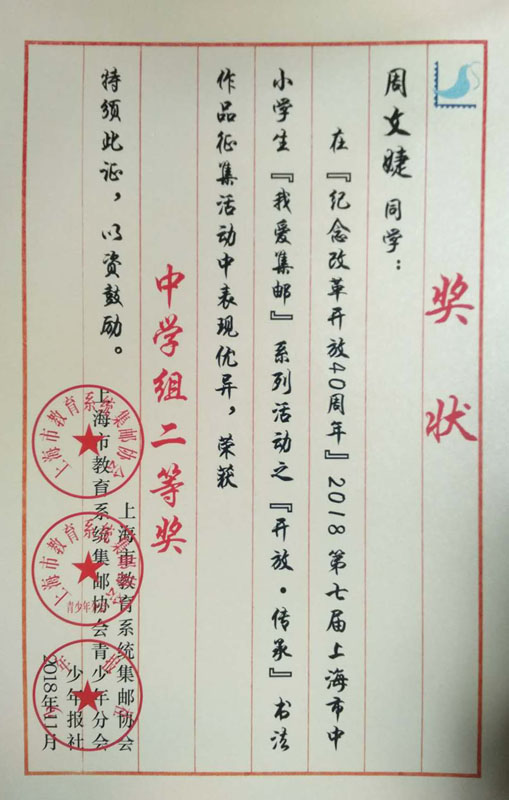 奖状
周文婕 同学：
在『纪念改革开放40周年』2018第七届上海市中
小学生『我爱集邮』系列活动之『开放·传承』书法
作品征集活动中表现优异，荣获
中学组二等奖
特须此证，以资鼓励。
上海市教育系统集邮协会
上海市教育系统集邮协会青少年分会
少年报社
2018年11月
上海市教育系统集邮协会
青少年分会